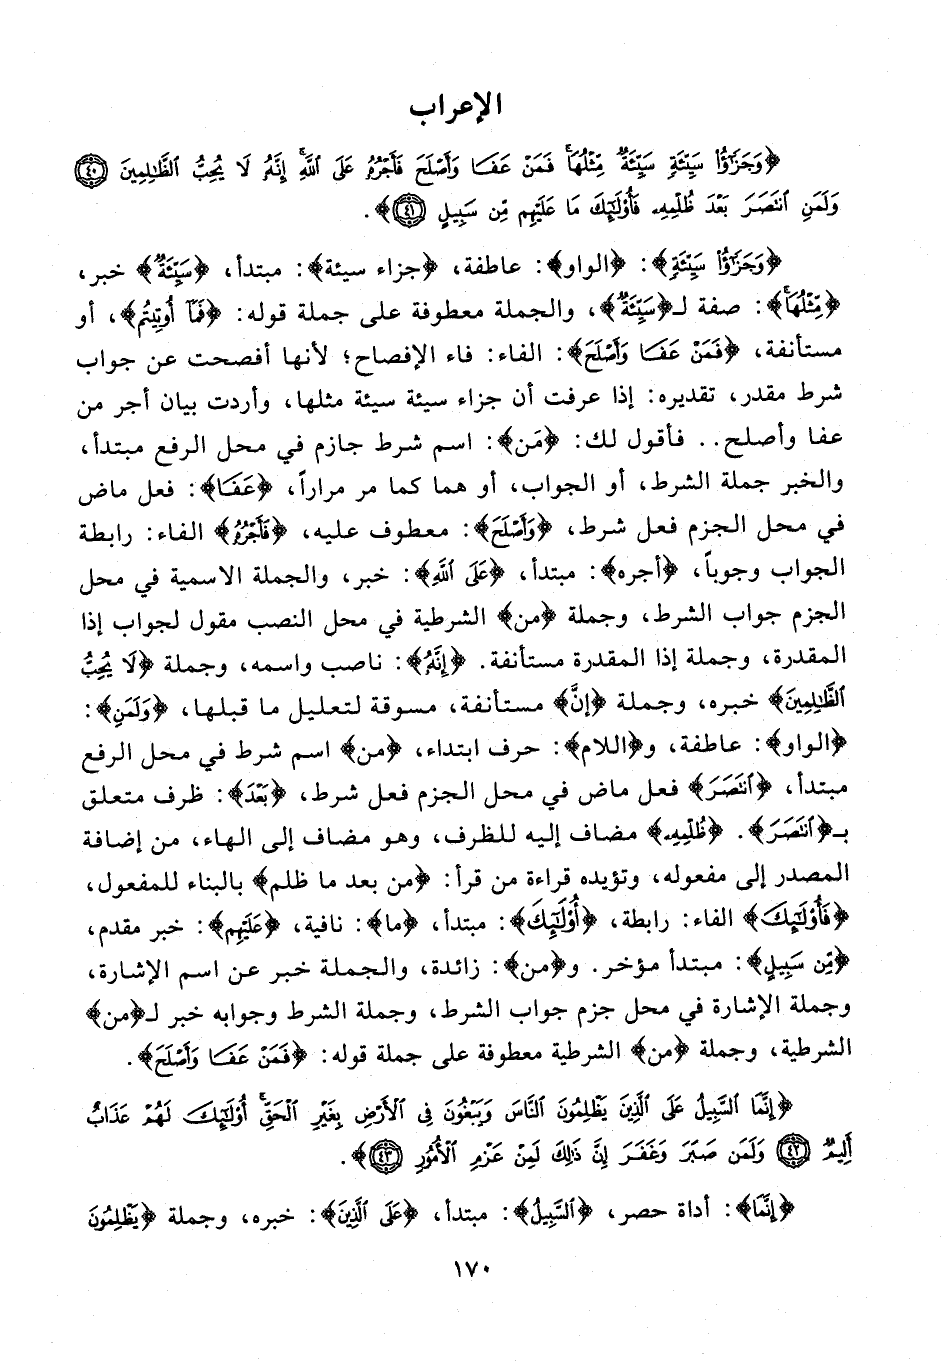 الإعراب
﴿وَجَزَٰٓؤُا۟ سَيِّئَةٍ سَيِّئَةٌ مِّثْلُهَا ۖ فَمَنْ عَفَا وَأَصْلَحَ فَأَجْرُهُۥ عَلَى ٱللَّهِ ۚ إِنَّهُۥ لَا يُحِبُّ ٱلظَّٰلِمِينَ ٤٠
وَلَمَنِ ٱنتَصَرَ بَعْدَ ظُلْمِهِۦ فَأُو۟لَٰٓئِكَ مَا عَلَيْهِم مِّن سَبِيلٍ ٤١﴾.
﴿وَجَزَٰٓؤُا۟ سَيِّئَةٍ﴾: ﴿الواو﴾: عاطفة، ﴿جزاء سيئة﴾: مبتدأ، ﴿سَيِّئَةٌ﴾ خبر،
﴿مِّثْلُهَا﴾: صفة لـ﴿سَيِّئَةٌ﴾، والجملة معطوفة على جملة قوله: ﴿فَمَآ أُوتِيتُم﴾، أو
مستأنفة، ﴿فَمَنْ عَفَا وَأَصْلَحَ﴾: الفاء: فاء الإفصاح؛ لأنها أفصحت عن جواب
شرط مقدر، تقديره: إذا عرفت أن جزاء سيئة سيئة مثلها، وأردت بيان أجر من
عفا وأصلح.. فأقول لك: ﴿مَن﴾: اسم شرط جازم في محل الرفع مبتدأ،
والخبر جملة الشرط، أو الجواب، أو هما كما مر مراراً، ﴿عَفَا﴾: فعل ماض
في محل الجزم فعل شرط، ﴿وَأَصْلَحَ﴾: معطوف عليه، ﴿فَأَجْرُهُۥ﴾ الفاء: رابطة
الجواب وجوباً، ﴿أجره﴾: مبتدأ، ﴿عَلَى ٱللَّهِ﴾: خبر، والجملة الاسمية في محل
الجزم جواب الشرط، وجملة ﴿من﴾ الشرطية في محل النصب مقول لجواب إذا
المقدرة، وجملة إذا المقدرة مستأنفة. ﴿إِنَّهُۥ﴾: ناصب واسمه، وجملة ﴿لَا يُحِبُّ
ٱلظَّٰلِمِينَ﴾ خبره، وجملة ﴿إنَّ﴾ مستأنفة، مسوقة لتعليل ما قبلها، ﴿وَلَمَنِ﴾:
﴿الواو﴾: عاطفة، و﴿اللام﴾: حرف ابتداء، ﴿من﴾ اسم شرط في محل الرفع
مبتدأ، ﴿ٱنتَصَرَ﴾ فعل ماض في محل الجزم فعل شرط، ﴿بَعْدَ﴾: ظرف متعلق
بـ﴿ٱنتَصَرَ﴾. ﴿ظُلْمِهِۦ﴾ مضاف إليه للظرف، وهو مضاف إلى الهاء، من إضافة
المصدر إلى مفعوله، وتؤيده قراءة من قرأ: ﴿من بعد ما ظلم﴾ بالبناء للمفعول،
﴿فَأُو۟لَٰٓئِكَ﴾ الفاء: رابطة، ﴿أُو۟لَٰٓئِكَ﴾: مبتدأ، ﴿ما﴾: نافية، ﴿عَلَيْهِم﴾: خبر مقدم،
﴿مِّن سَبِيلٍ﴾: مبتدأ مؤخر. و﴿من﴾: زائدة، والجملة خبر عن اسم الإشارة،
وجملة الإشارة في محل جزم جواب الشرط، وجملة الشرط وجوابه خبر لـ﴿من﴾
الشرطية، وجملة ﴿من﴾ الشرطية معطوفة على جملة قوله: ﴿فَمَنْ عَفَا وَأَصْلَحَ﴾.
﴿إِنَّمَا ٱلسَّبِيلُ عَلَى ٱلَّذِينَ يَظْلِمُونَ ٱلنَّاسَ وَيَبْغُونَ فِى ٱلْأَرْضِ بِغَيْرِ ٱلْحَقِّ ۚ أُو۟لَٰٓئِكَ لَهُمْ عَذَابٌ
أَلِيمٌ ٤٢ وَلَمَن صَبَرَ وَغَفَرَ إِنَّ ذَٰلِكَ لَمِنْ عَزْمِ ٱلْأُمُورِ ٤٣﴾.
﴿إِنَّمَا﴾: أداة حصر، ﴿ٱلسَّبِيلُ﴾: مبتدأ، ﴿عَلَى ٱلَّذِينَ﴾: خبره، وجملة ﴿يَظْلِمُونَ
١٧٠